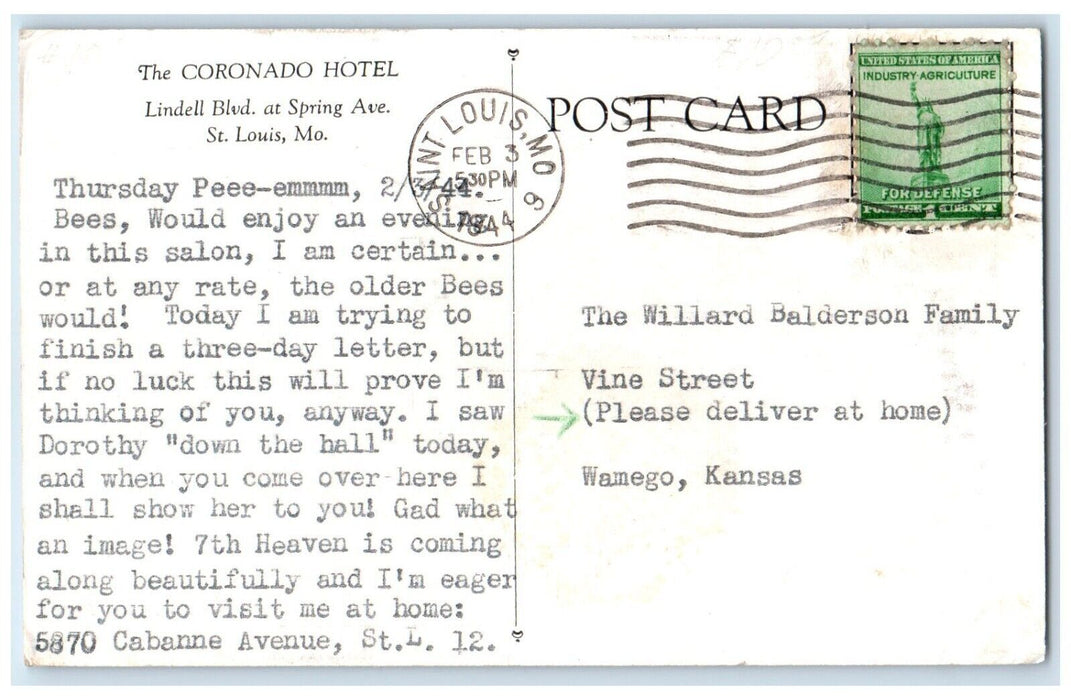 The CORONADO HOTEL
Lindell Blvd. at Spring Ave.
St. Louis, Mo.
POST CARD
SAINT LOUIS, MO
FEB 3
5:30PM
1944
9
UNITED STATES OF AMERICA
INDUSTRY-AGRICULTURE
FOR DEFENSE
POSTAGE 1 CENT
Thursday Peee-emmmm, 2/3/44.
Bees, Would enjoy an evening
in this salon, I am certain...
or at any rate, the older Bees
would! Today I am trying to
finish a three-day letter, but
if no luck this will prove I'm
thinking of you, anyway. I saw
Dorothy "down the hall" today,
and when you come over here I
shall show her to you! Gad what
an image! 7th Heaven is coming
along beautifully and I'm eager
for you to visit me at home:
5870 Cabanne Avenue, St.L. 12.
The Willard Balderson Family
Vine Street
(Please deliver at home)
Wamego, Kansas